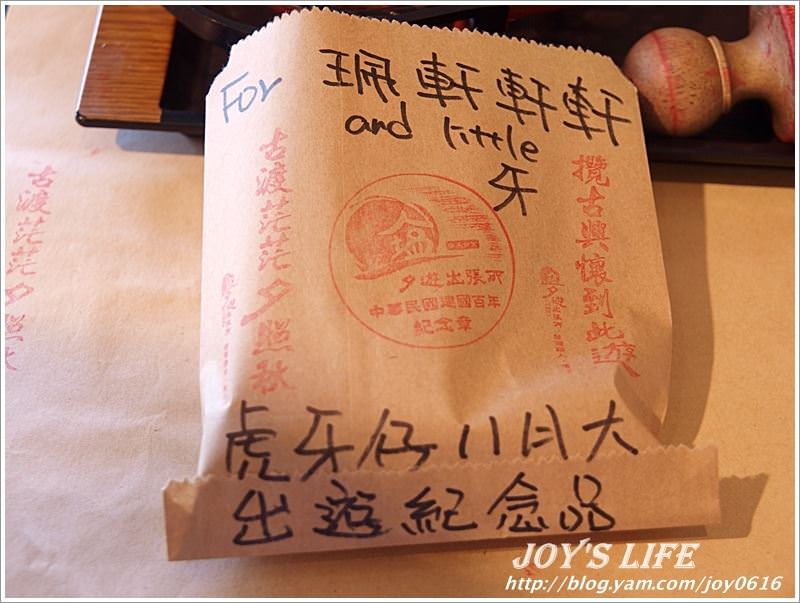 For 珮軒軒軒
and little
牙
古渡茫茫夕照秋
攬古興懷到此遊
夕遊出張所
中華民國建國百年
紀念章
虎牙仔11月大
出遊紀念品
古渡茫茫夕照秋
JOY'S LIFE
http://blog.yam.com/joy0616